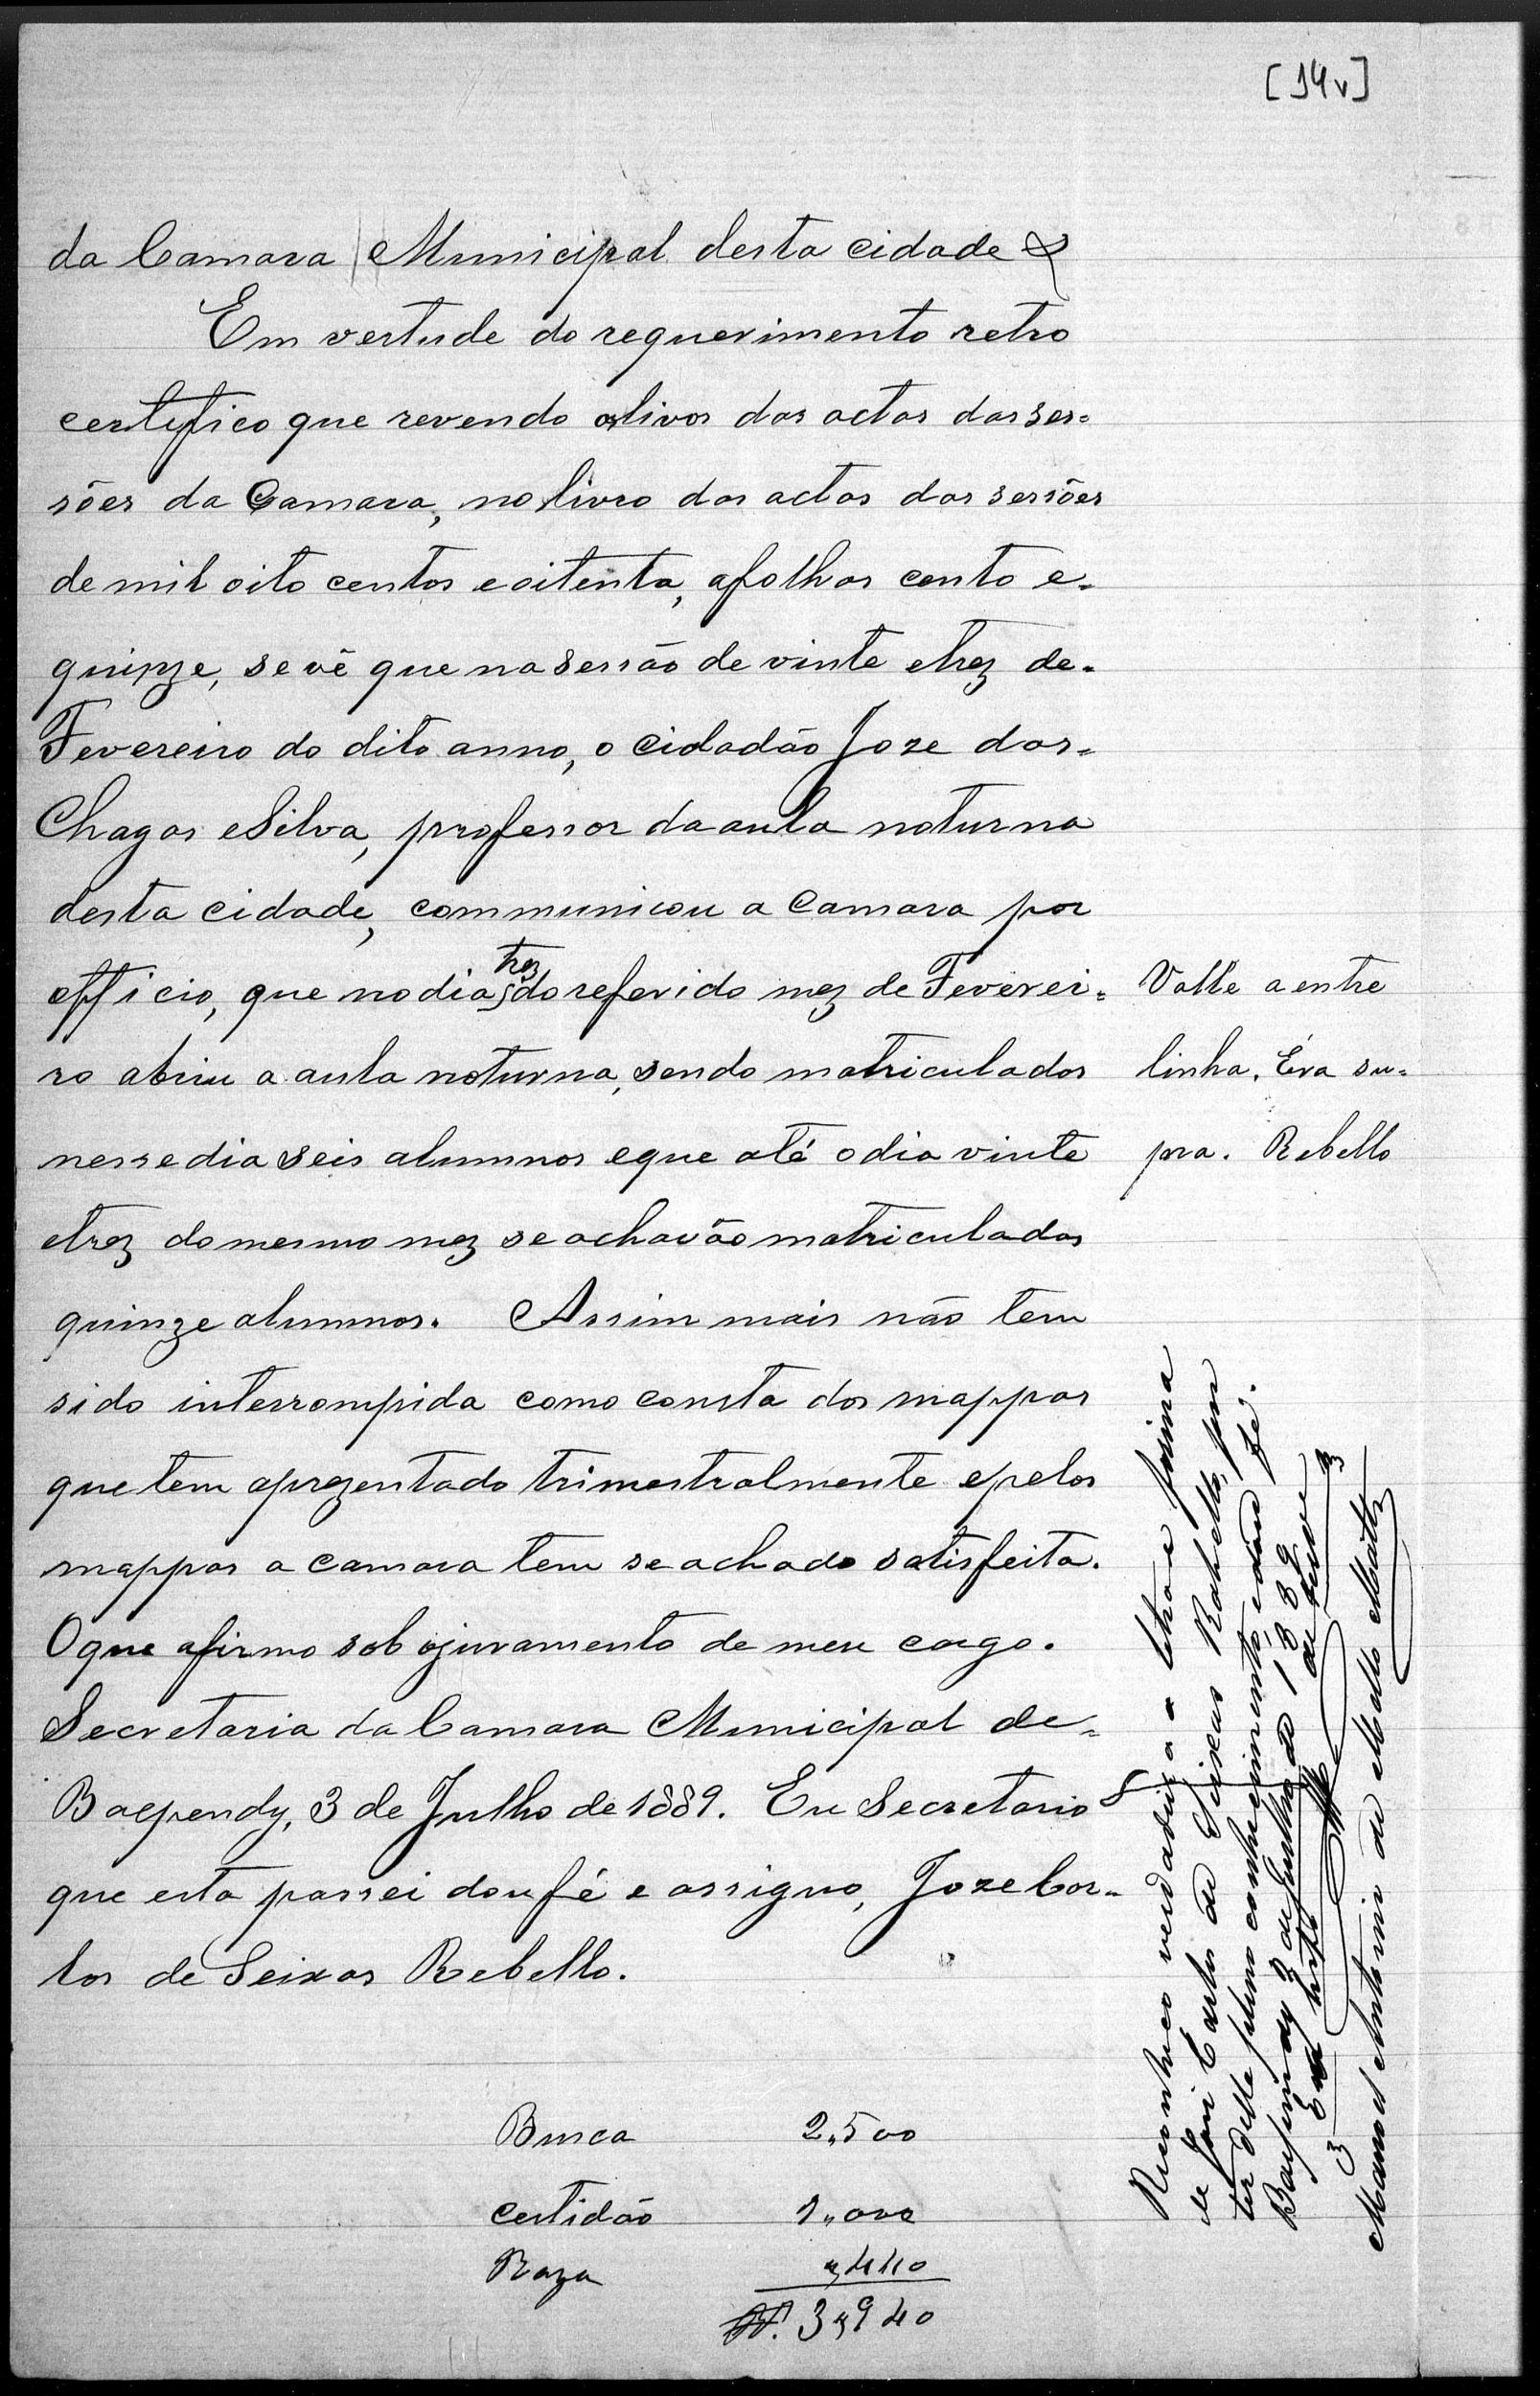 [14v]
da Camara Municipal desta cidade &
Em vertude do requerimento retro
certefico que revendo os livos das actas das ses=
sões da Camara, no livro das actas das sessões
de mil oito centos e oitenta, afolhas cento e=
quinze, se vê que na sessão de vinte etrez de=
Fevereiro do dito anno, o cidadão Joze das=
Chagas eSilva, professor da aula noturna
desta cidade, communicou a Camara por
officio, que no dia trez do referido mez de Feverei=
ro abriu a aula noturna, sendo matriculados
nesse dia seis alumnos eque até o dia vinte
etrez do mesmo mez se achavão matriculados
quinze alumnos. Assim mais não tem
sido interrompida como consta dos mappas
que tem aprezentado trimestralmente epelos
mappas a camara tem se achado satisfeita.
Oque afirmo sob ojuramento de meu cargo.
Secretaria da Camara Municipal de=
Baependy, 3 de Julho de 1889. Eu Secretario
que esta passei dou fé e assigno, Joze Car=
los de Seixas Rebello.
Valle a entre
linha. Éra su=
pra. Rebello
Reconheço verdadeira a letra e firma
de José Carlos de Seixas Rebello, por
ter della pleno conhecimento, edou fé.
Baependy 3 de Julho de 1889
Em testo de verde
Manoel Antonio de Mello Mattos
Busca 2,,500
Certidão 1,,000
Raza ,,440
Rs. 3,,940